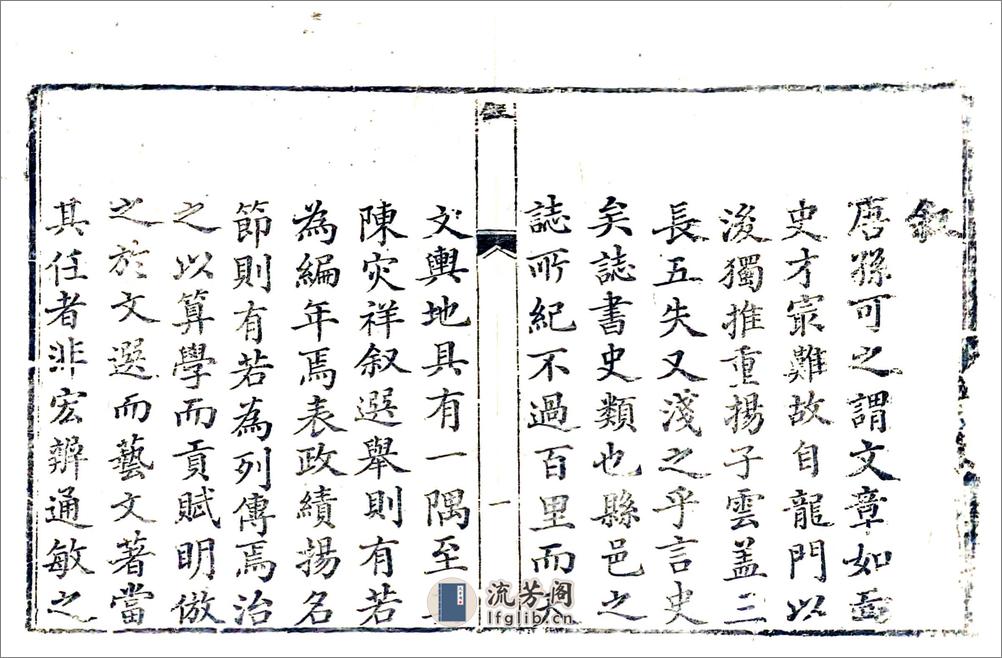 叙
唐孫可之謂文章如面
史才冣難故自龍門以
後獨推重揚子雲盖三
長五失又淺之乎言史
矣誌書史類也縣邑之
誌所紀不過百里而天
叙
一
文輿地具有一隅至
陳灾祥叙選舉則有若
為編年焉表政績揚名
節則有若為列傳焉治
之以算學而貢賦明倣
之於文選而藝文著當
其任者非宏辨通敏之
流芳阁
lfglib.cn